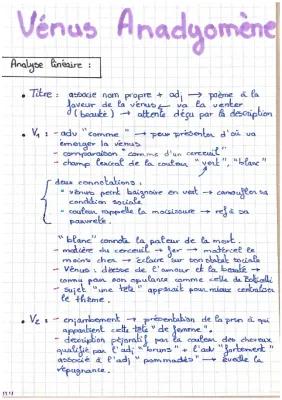 Vénus Anadyomène
Analyse linéaire :
• Titre : associe nom propre + adj → poème à la
faveur de la vénus ← va la vanter
(beauté) → attente déçu par la description
• V1 : - adv "comme" → pour présenter d'où va
émerger la vénus
- comparaison "comme d'un cercueil"
- champ lexical de la couleur "vert", "blanc"
deux connotations :
• vénus peint baignoire en vert → camoufler sa
condition sociale
• couleur rappelle la moisissure → ref à sa
pauvreté.
"blanc" connote la pâleur de la mort.
- matière du cercueil → fer → matériel le
moins cher → éclaire son statut sociale
- Vénus : déesse de l'amour et la beauté →
connu pour son opulance comme celle de Botticelli
- sujet "une tête" apparait pour mieux centraliser
le thème.
• V2 : - enjambement → présentation de la prsn à qui
appartient cette tête "de femme".
- description péjoratif par la couleur des cheveux
qualifié par l'adj "bruns" + l'adv "fortement"
associé à l'adj "pommadés" → éveille la
répugnance.